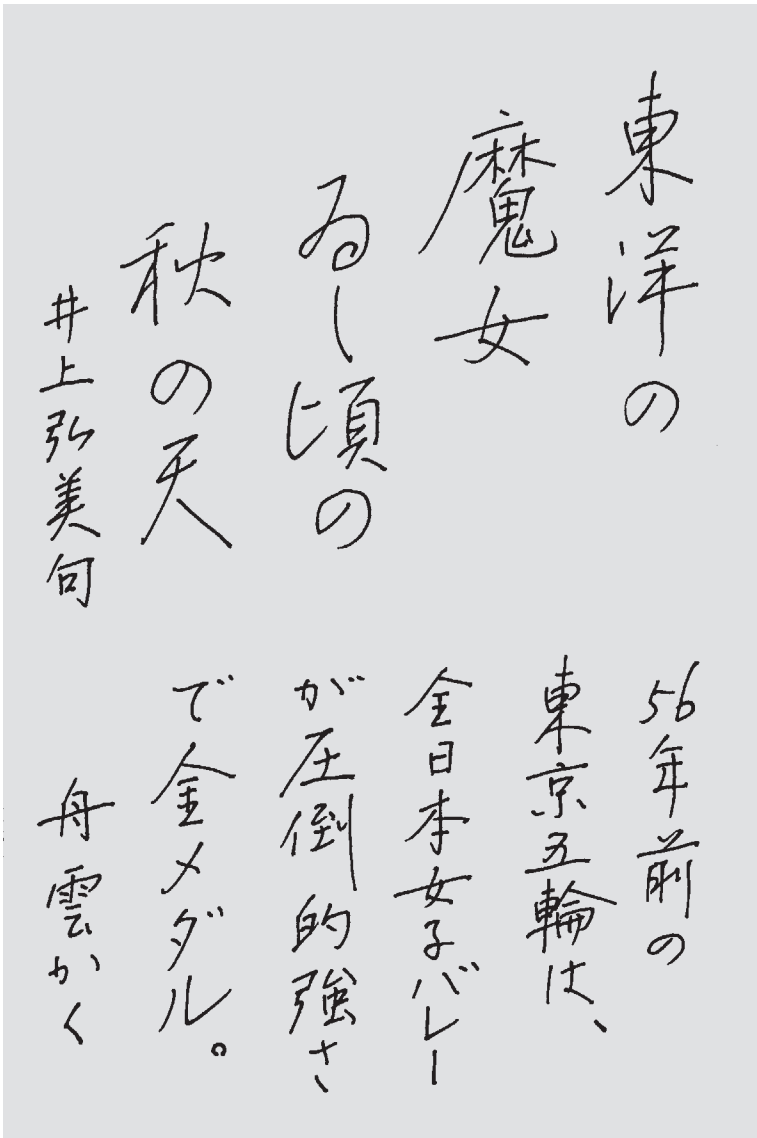 東洋の
魔女
ゐし頃の
秋の天
井上弘美句
56年前の
東京五輪は、
全日本女子バレー
が圧倒的強さ
で金メダル。
舟雲かく